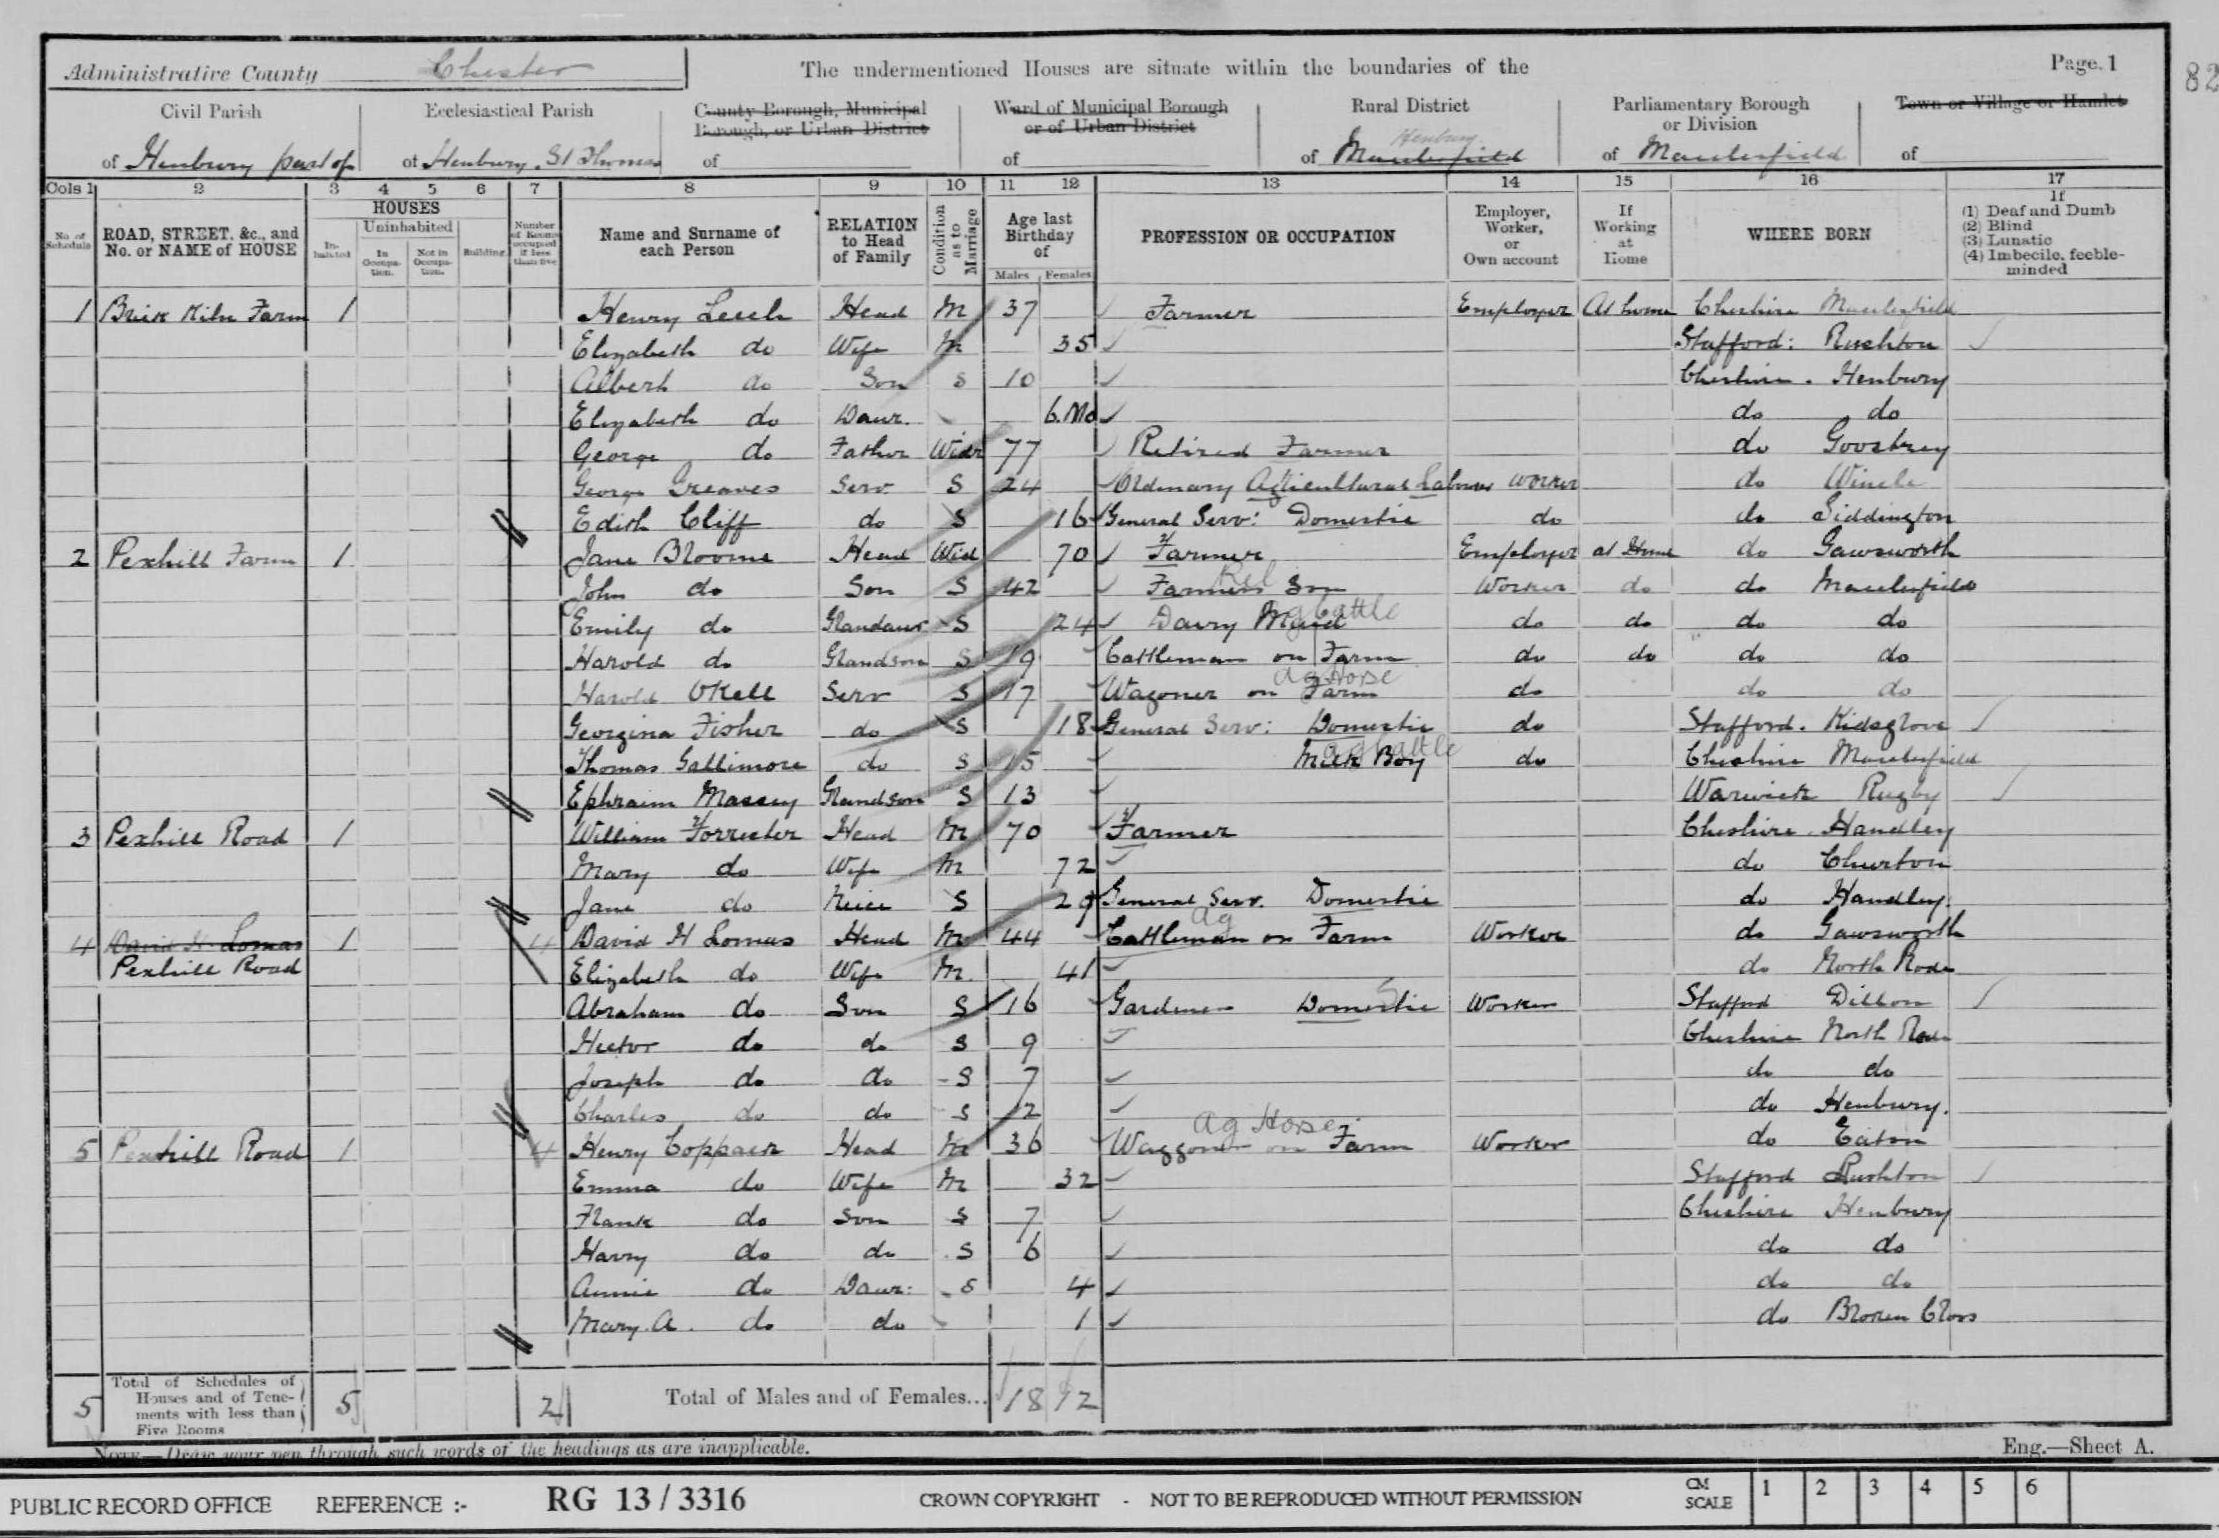 Administrative County Chester
The undermentioned Houses are situate within the boundaries of the
Page. 1
82
Civil Parish
of Henbury part of
Ecclesiastical Parish
of Henbury St Thomas
County Borough, Municipal
Borough, or Urban District
of
Ward of Municipal Borough
or of Urban District
of
Rural District
Henbury
of Macclesfield
Parliamentary Borough
or Division
of Macclesfield
Town or Village or Hamlet
of
Cols 1 2 3 4 5 6 7 8 9 10 11 12 13 14 15 16 17
No. of Schedule
ROAD, STREET, &c., and
No. or NAME of HOUSE
HOUSES
In-habited
Uninhabited
In Occupa-tion.
Not in Occupa-tion.
Building
Number of Rooms occupied if less than five
Name and Surname of
each Person
RELATION
to Head
of Family
Condition as to Marriage
Age last
Birthday
of
Males Females
PROFESSION OR OCCUPATION
Employer,
Worker,
or
Own account
If
Working
at
Home
WHERE BORN
If
(1) Deaf and Dumb
(2) Blind
(3) Lunatic
(4) Imbecile, feeble-
minded
1 Brick Kiln Farm 1 Henry Leech Head M 37 Farmer Employer At home Cheshire Macclesfield
Elizabeth do Wife M 35 Stafford: Rushton
Albert do Son S 10 Cheshire. Henbury
Elizabeth do Daur. 6.Mo do do
George do Father Widr 77 Retired Farmer do Goostrey
George Greaves Serv S 24 Ordinary Agricultural Labourer Worker do Wincle
Edith Cliff do S 16 General Serv: Domestic do do Siddington
2 Pexhill Farm 1 Jane Broome Head Wid 70 Farmer Employer at Home do Gawsworth
John do Son S 42 Farmers Son Rel Worker do do Macclesfield
Emily do Grandaur S 24 Dairy Maid do do do do
Harold do Grandson S 19 Cattleman on Farm ag Cattle do do do do
Harold Okell Serv S 17 Wagoner on Farm ag Horse do do do
Georgina Fisher do S 18 General Serv: Domestic do Stafford. Kidsgrove
Thomas Gallimore do S 15 Milk Boy ag Cattle do Cheshire Macclesfield
Ephraim Massey Grandson S 13 Warwick Rugby
3 Pexhill Road 1 William Forrester Head M 70 Farmer Cheshire Handley
Mary do Wife M 72 do Churton
Jane do Neice S 29 General Serv. Domestic do Handley.
4 David H. Lomas 1 4 David H Lomas Head M 44 Cattleman on Farm ag Worker do Gawsworth
Pexhill Road Elizabeth do Wife M 41 do North Rode
Abraham do Son S 16 Gardener Domestic Worker Stafford Dilhorn
Hector do do S 9 Cheshire North Rode
Joseph do do S 7 do do
Charles do do S 2 do Henbury.
5 Pexhill Road 1 4 Henry Coppack Head M 36 Waggoner on Farm ag Horse Worker do Eaton
Emma do Wife M 32 Stafford Rushton
Frank do Son S 7 Cheshire Henbury
Harry do do S 6 do do
Annie do Daur: S 4 do do
Mary. A. do do 1 do Broken Cross
5 Total of Schedules of
Houses and of Tene-
ments with less than
Five Rooms
5 2 Total of Males and of Females... 18 12
NOTE.—Draw your pen through such words of the headings as are inapplicable.
Eng.—Sheet A.
PUBLIC RECORD OFFICE REFERENCE :- RG 13 / 3316 CROWN COPYRIGHT - NOT TO BE REPRODUCED WITHOUT PERMISSION
CM SCALE 1 2 3 4 5 6